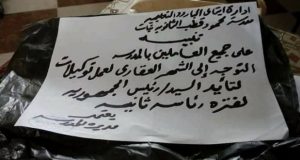 ادارة ايتاى البارود التعليمية
مدرسة محمود قطب الثانوية بنات
تنبيه
على جميع العاملين بالمدرسة
التوجه إلى الشهر العقارى لعمل توكيلات
لتأيد السيد/ رئيس الجمهورية
لفترة رئاسة ثانية
يعتمد
مديرة المدرسة